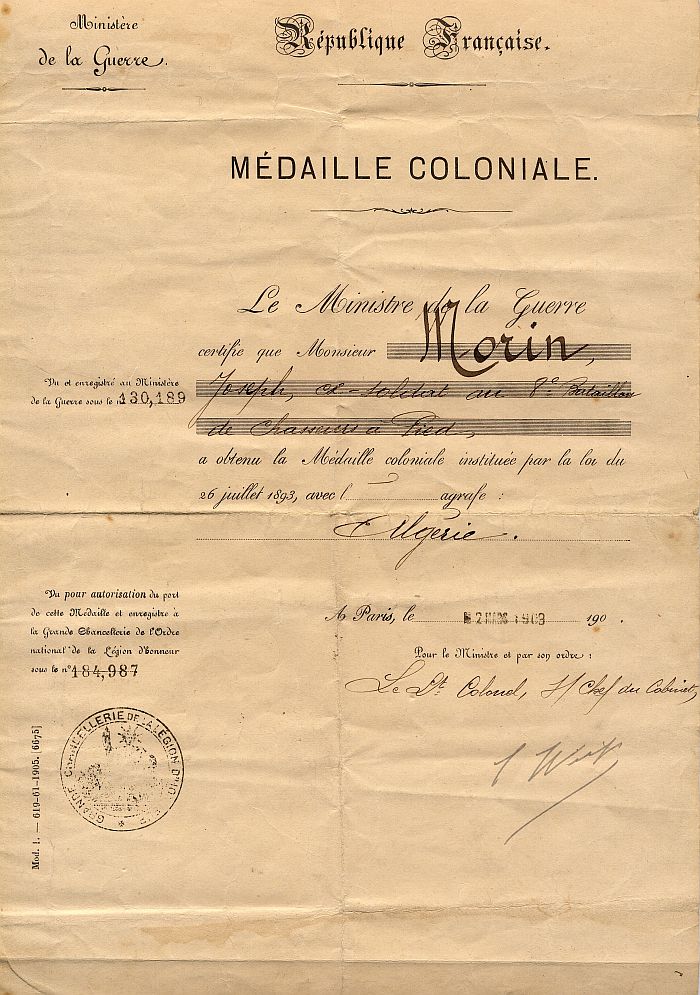 Ministère
de la Guerre.
République Française.
MÉDAILLE COLONIALE.
Le Ministre de la Guerre
certifie que Monsieur Morin,
Joseph, ex-soldat au 8e Bataillon
de Chasseurs à Pied,
a obtenu la Médaille coloniale instituée par la loi du
26 juillet 1893, avec l' agrafe :
Algérie.
Vu et enregistré au Ministère
de la Guerre sous le n° 130,189
A Paris, le 2 MARS 190 .
Pour le Ministre et par son ordre :
Le Lt Colonel, S/ Chef du Cabinet,
Vu pour autorisation du port
de cette Médaille et enregistré à
la Grande Chancellerie de l'Ordre
national de la Légion d'honneur
sous le n° 184,987
GRANDE CHANCELLERIE DE LA LÉGION D'HO
Mod. 1. — 619-61-1905. [6675]